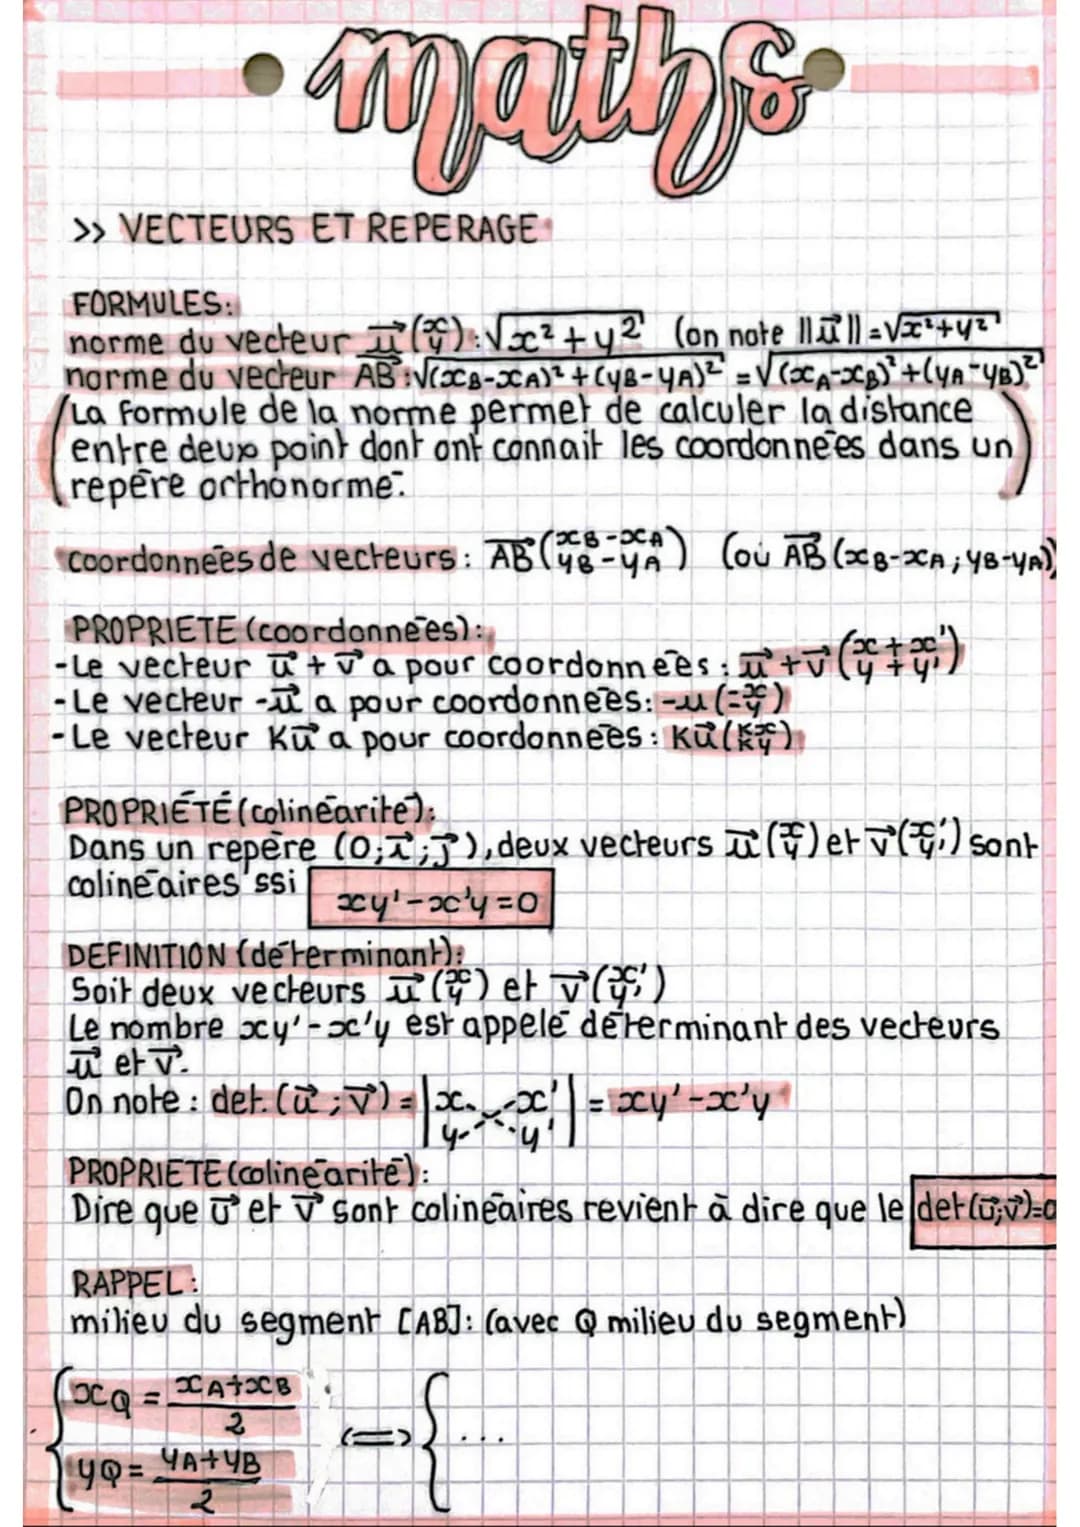 maths
>> VECTEURS ET REPERAGE
FORMULES:
norme du vecteur u⃗ (x y) : √x²+y² (on note ||u⃗|| = √x²+y²
norme du vecteur AB⃗ : √(xB-xA)²+(yB-yA)² = √(xA-xB)²+(yA-yB)²
(La formule de la norme permet de calculer la distance
entre deux point dont ont connait les coordonnées dans un
repère orthonormé.)
coordonnées de vecteurs : AB⃗ (xB-xA yB-yA) (ou AB⃗ (xB-xA ; yB-yA))
PROPRIETE (coordonnées) :
-Le vecteur u⃗ + v⃗ a pour coordonnées : u⃗ + v⃗ (x+x' y+y')
-Le vecteur -u⃗ a pour coordonnées: -u (-x -y)
-Le vecteur Ku⃗ a pour coordonnées : Ku⃗ (Kx Ky)
PROPRIÉTÉ (colinéarité) :
Dans un repère (O; i⃗ ; j⃗), deux vecteurs u⃗ (x y) et v⃗ (x' y') sont
colinéaires ssi
xy'-x'y=0
DEFINITION (déterminant) :
Soit deux vecteurs u⃗ (x y) et v⃗ (x' y')
Le nombre xy'-x'y est appelé déterminant des vecteurs
u⃗ et v⃗.
On note : det. (u⃗ ; v⃗) = |x x' y y'| = xy'-x'y
PROPRIETE (colinéarité) :
Dire que u⃗ et v⃗ sont colinéaires revient à dire que le det(u⃗;v⃗)=0
RAPPEL :
milieu du segment [AB]: (avec Q milieu du segment)
{ xQ = xA+xB / 2
yQ = yA+yB / 2 <=> { ...